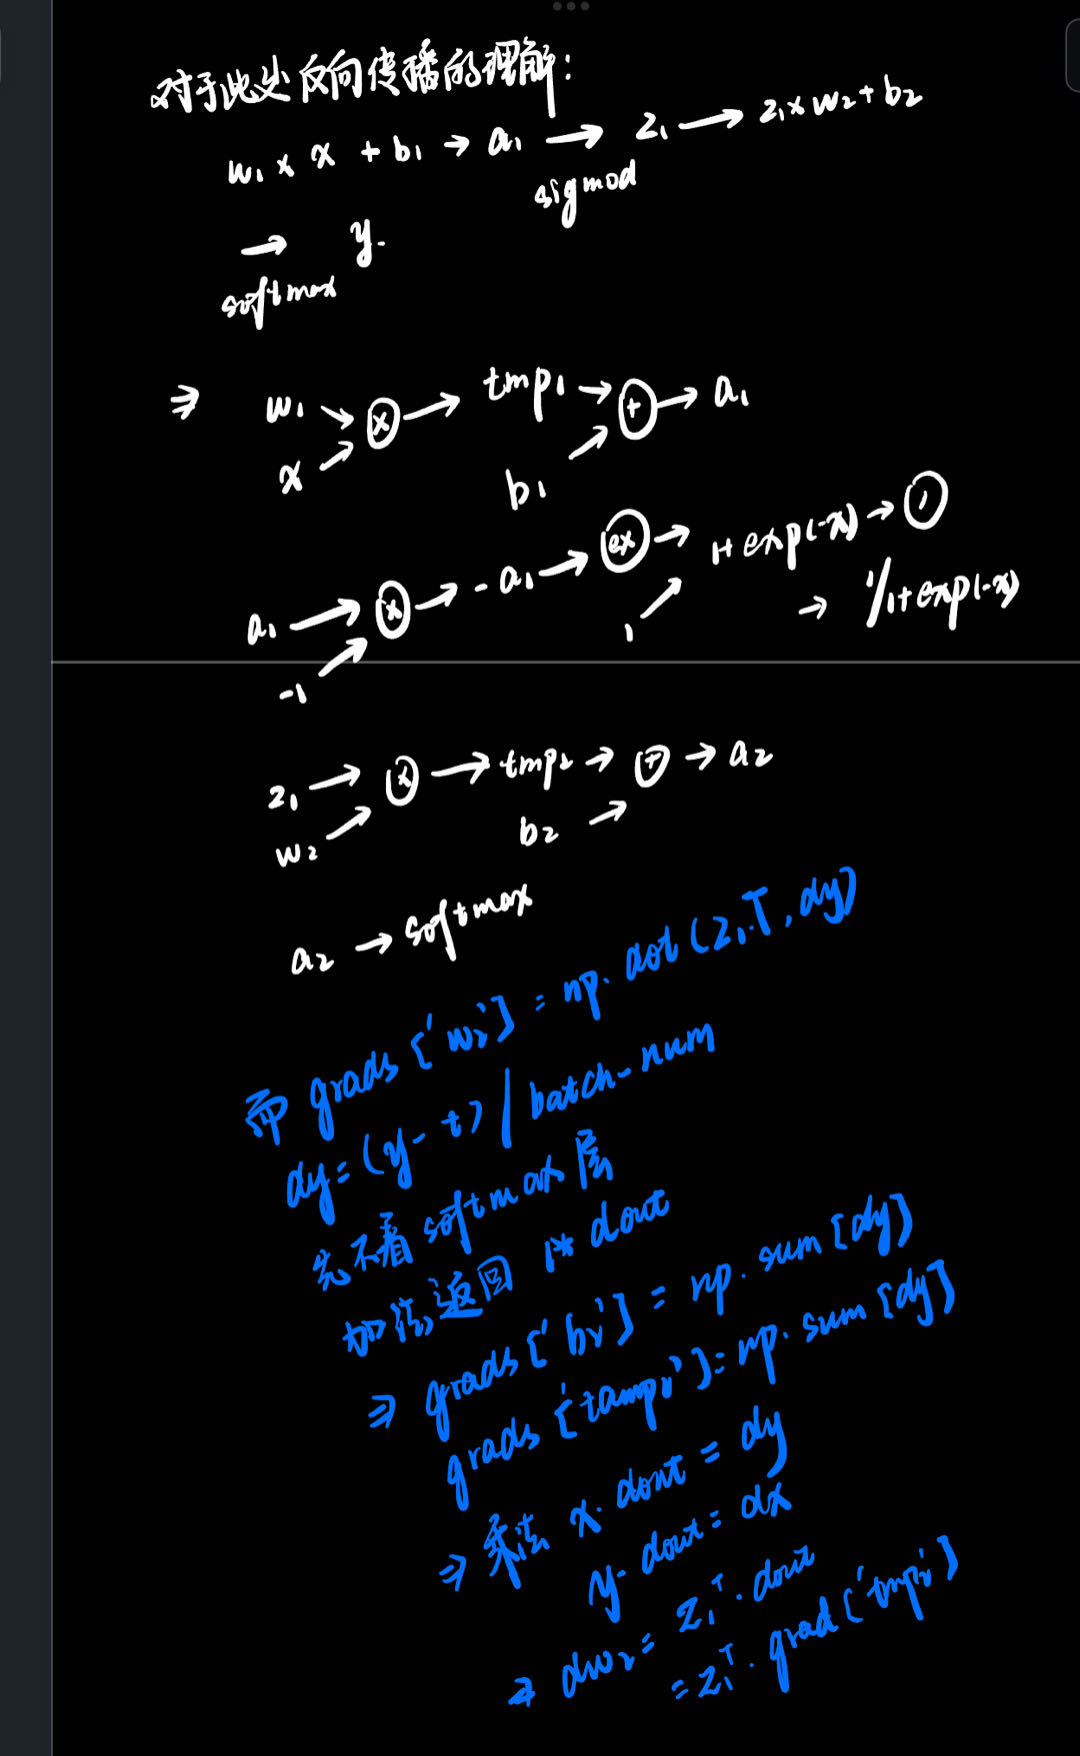 对于此处反向传播的理解:
w₁ × x + b₁ → a₁ → z₁ → z₁ × w₂ + b₂
sigmod
→ y.
softmax
⇒ w₁ → ⊗ → tmp₁ → ⊕ → a₁
x
b₁
a₁ → ⊗ → -a₁ → ex → 1+exp(-x) → /
-1
1
→ 1/1+exp(-x)
z₁ → ⊗ → tmp₂ → ⊕ → a₂
w₂
b₂
a₂ → softmax
而 grads['w₂'] = np.dot(z₁.T, dy)
dy = (y - t) / batch-num
先不看 softmax 层
加法返回 1* dout
⇒ grads['b₂'] = np.sum[dy]
grads['tamp₂'] = np.sum[dy]
⇒ 乘法 x. dout = dy
y. dout = dx
⇒ dw₂ = z₁ᵀ. dout
= z₁ᵀ. grad['tmp₂']